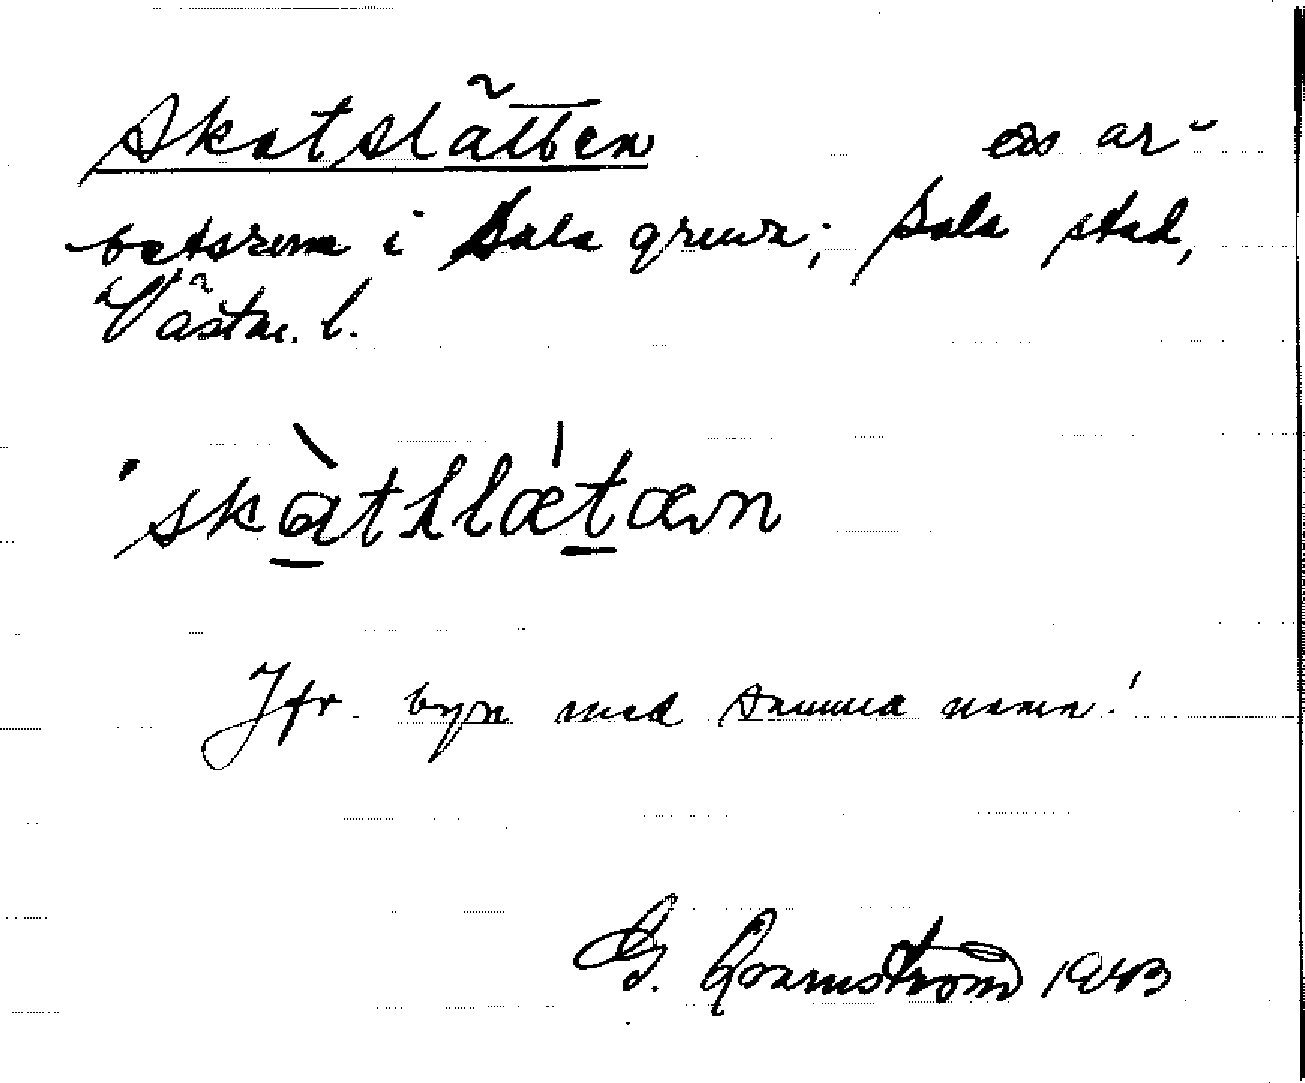 Skatslätten ar-
betsrum i Sala gruva; Sala stad,
Västm. l.
skàthlætæn
Jfr. byn med samma namn!
G. 1943